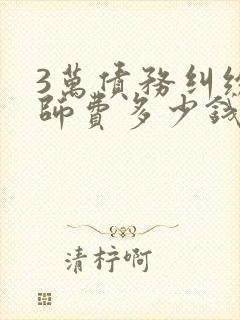 3萬債務糾紛
師費多少錢
清柠啊